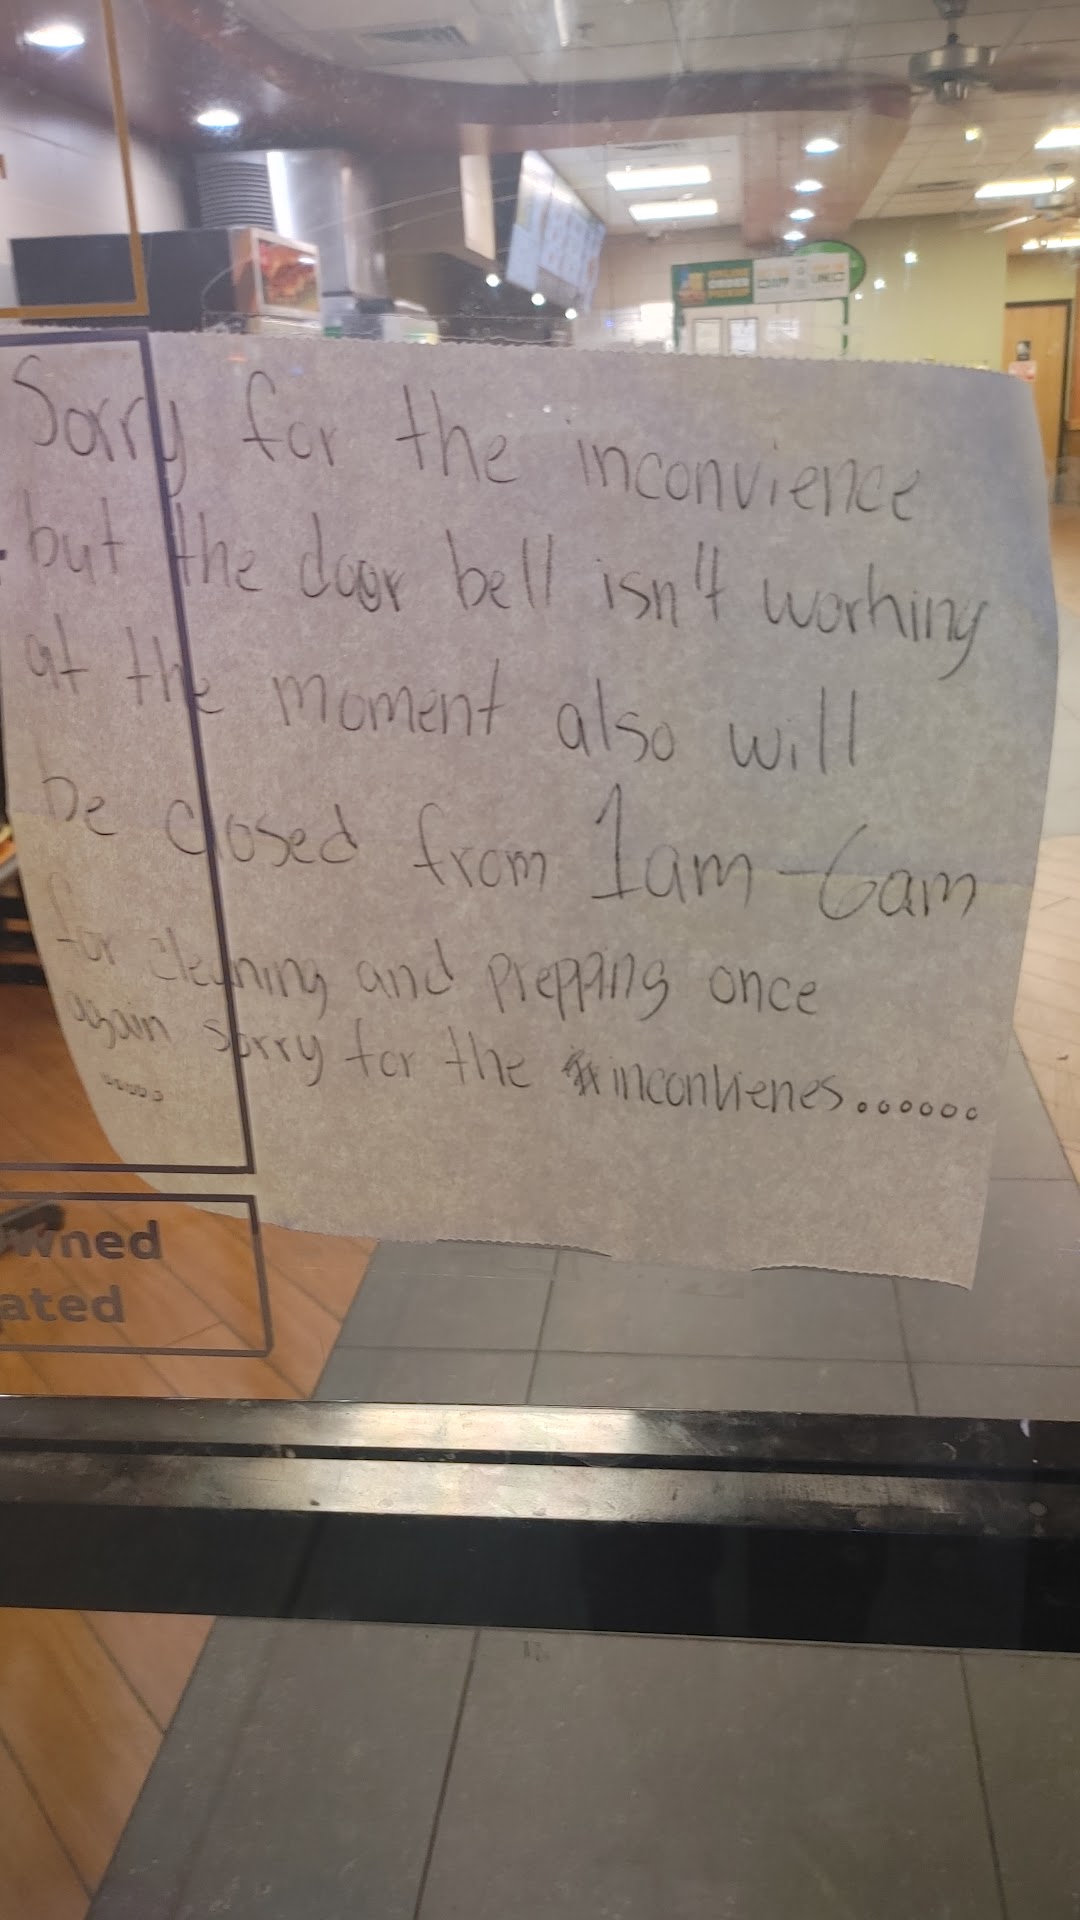 ONLINE
ORDER
Sorry for the inconvience
but the door bell isn't working
at the moment also will
be closed from 1am-6am
for cleaning and prepping once
again sorry for the inconvienes......
.....
wned
ated